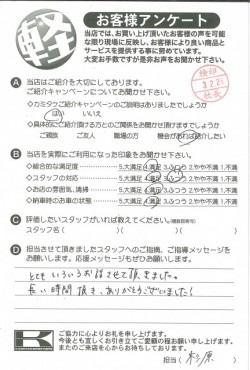 軽
お客様アンケート
当店では、お買い上げ頂いたお客様の声を可能
な限り現場に反映し、お客様により良い商品と
サービスを提供する事に努めています。
大変お手数ですが是非お声をお聞かせ下さい。
A 当店はご紹介を大切にしております。
ご紹介キャンペーンについてお聞かせ下さい。
<カミタワご紹介キャンペーンのご説明はありましたでしょうか
はい いいえ
<具体的にご紹介頂ける方とのご関係をお聞かせ頂けますでしょうか
ご親族 ご友人 職場の方 機会があれば紹介したい
B 当店を実際にご利用になった印象をお聞かせ下さい。
<総合的な満足度 5.大満足 4.満足 3.ふつう 2.やや不満 1.不満
<スタッフの対応 5.大満足 4.満足 3.ふつう 2.やや不満 1.不満
<お店の雰囲気、清掃 5.大満足 4.満足 3.ふつう 2.やや不満 1.不満
<納車時のお車の状態 5.大満足 4.満足 3.ふつう 2.やや不満 1.不満
C 評価したいスタッフがいれば教えてください。(複数回答可)
スタッフ名( )( )( )
D 担当させて頂きましたスタッフへのご指摘、ご指導メッセージを
お願いします。応援メッセージもぜひお願いします。
とても いろいろお話させて頂きました。
長い時間頂き、ありがとうございました!
K
ご協力に心よりお礼を申し上げます。
今後とも宜しくお引き立てご愛顧の程お願い申し上げます。
またのご来店を心からお待ちしております。
担当( 杉原 )